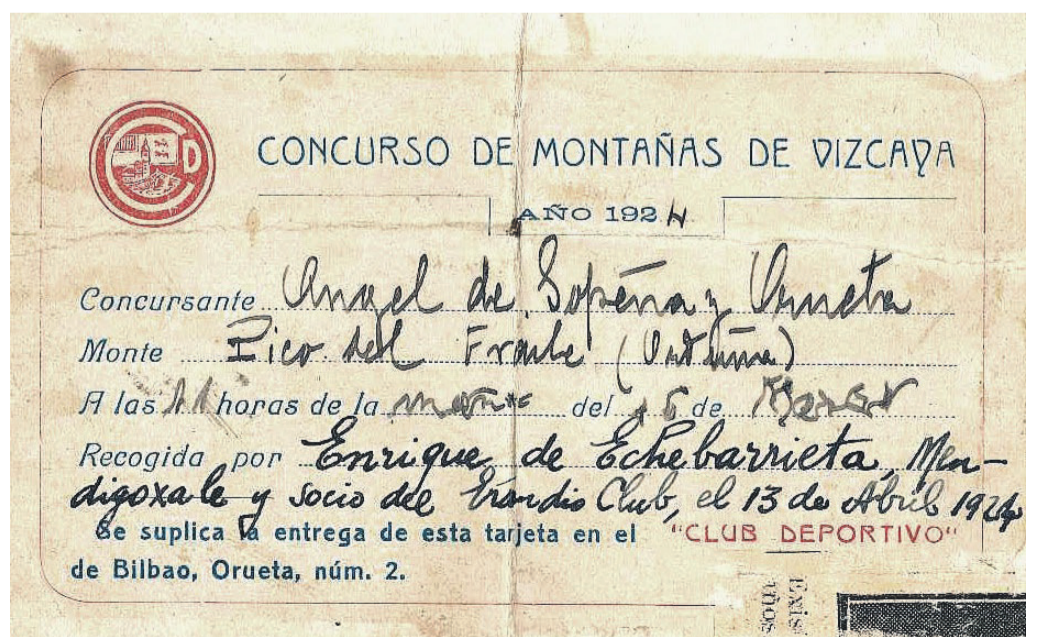 CONCURSO DE MONTAÑAS DE VIZCAYA
AÑO 1924
Concursante Angel de Sopeña y Orueta
Monte Pico del Fraile (Orduña)
A las 11 horas de la mañª del 16 de Marzo
Recogida por Enrique de Echebarrieta, Men-
digoxale y socio del Erandio Club, el 13 de Abril 1924
Se suplica la entrega de esta tarjeta en el "CLUB DEPORTIVO"
de Bilbao, Orueta, núm. 2.